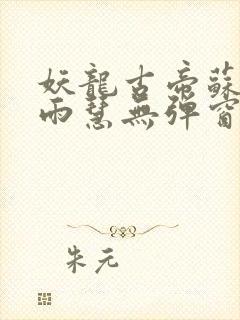 妖龍古帝蘇
雨慧無彈窗
朱元